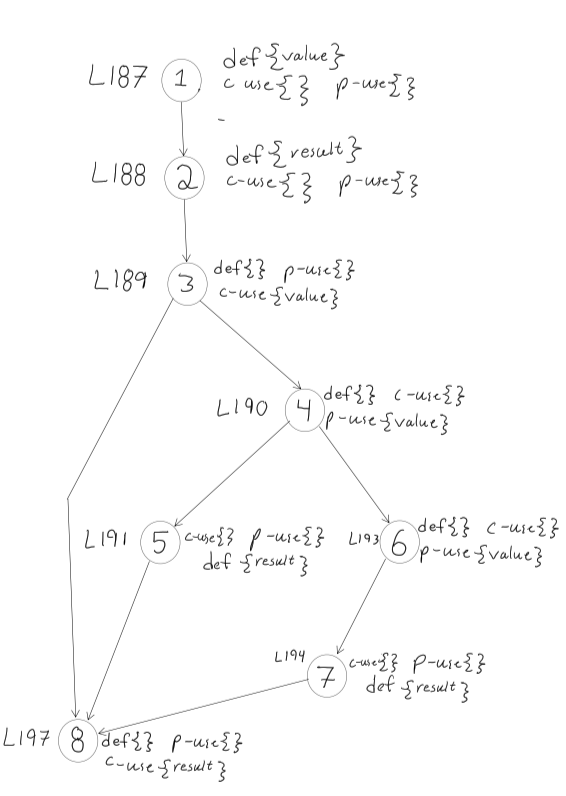 def {value}
L187 1 c use{} p-use{}
def { result}
L188 2 c-use{} p-use{}
L189 3 def{} p-use{}
c-use {value}
L190 4 def{} c-use{}
p-use {value}
L191 5 c-use{} p-use{}
def {result}
L193 6 def{} c-use{}
p-use {value}
L194 7 c-use{} p-use{}
def {result}
L197 8 def{} p-use{}
c-use {result}